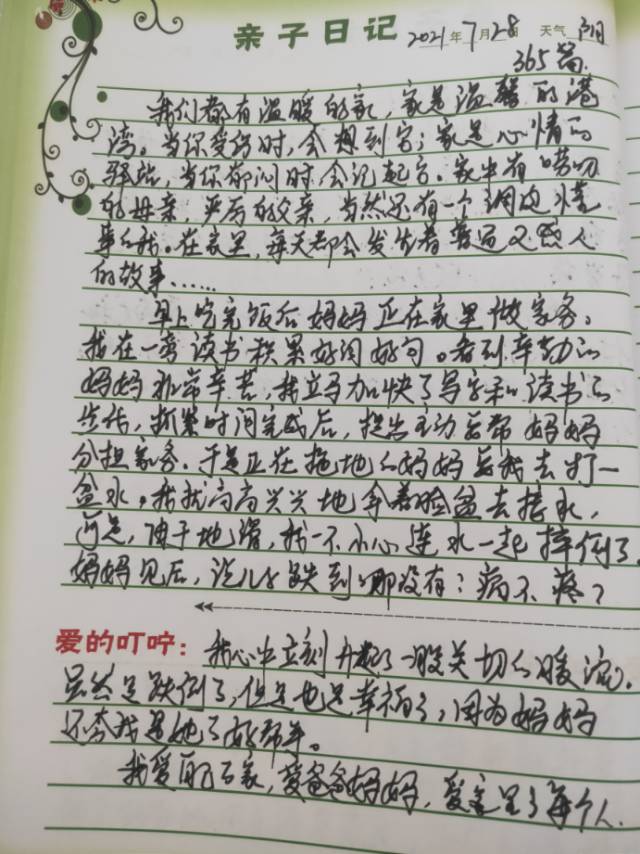 亲子日记 2021年7月28日 天气 阴
365篇.
我们都有温暖的家,家是温馨的港
湾。当你受伤时,会想到它;家是心情的
驿站,当你郁闷时,会记起它。家中有唠叨
的母亲,严厉的父亲,当然还有一个调皮懂
事的我。在家里,每天都会发生着普通又感人
的故事……
早上吃完饭后妈妈正在家里做家务,
我在一旁读书积累好词好句。看到辛勤的
妈妈非常辛苦,我立马加快了写字和读书的
步伐,抓紧时间完成后,提出主动去帮妈妈
分担家务。于是正在拖地的妈妈要我去打一
盆水,我就高高兴兴地拿着脸盆去接水,
可是,由于地滑,我一不小心连水一起摔倒了。
妈妈见后,说儿子跌到哪没有?痛不疼?
爱的叮咛:我心中立刻升起了一股关切的暖流.
虽然是跌倒了,但是也是幸福的,因为妈妈
还夸我是她的好帮手。
我爱我的家,爱爸爸妈妈,爱家里的每个人.